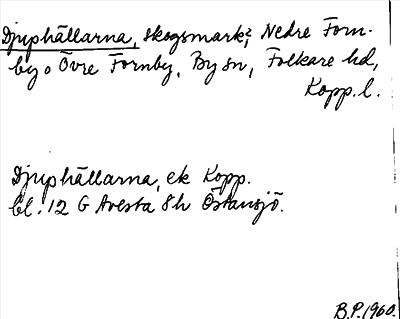 Djuphällarna, skogsmark?, Nedre Forn-
by o Övre Fornby, By sn, Folkare hd,
Kopp. l.
Djuphällarna, ek Kopp.
bl. 12 G Avesta 8h Östansjö.
B.P. 1960.